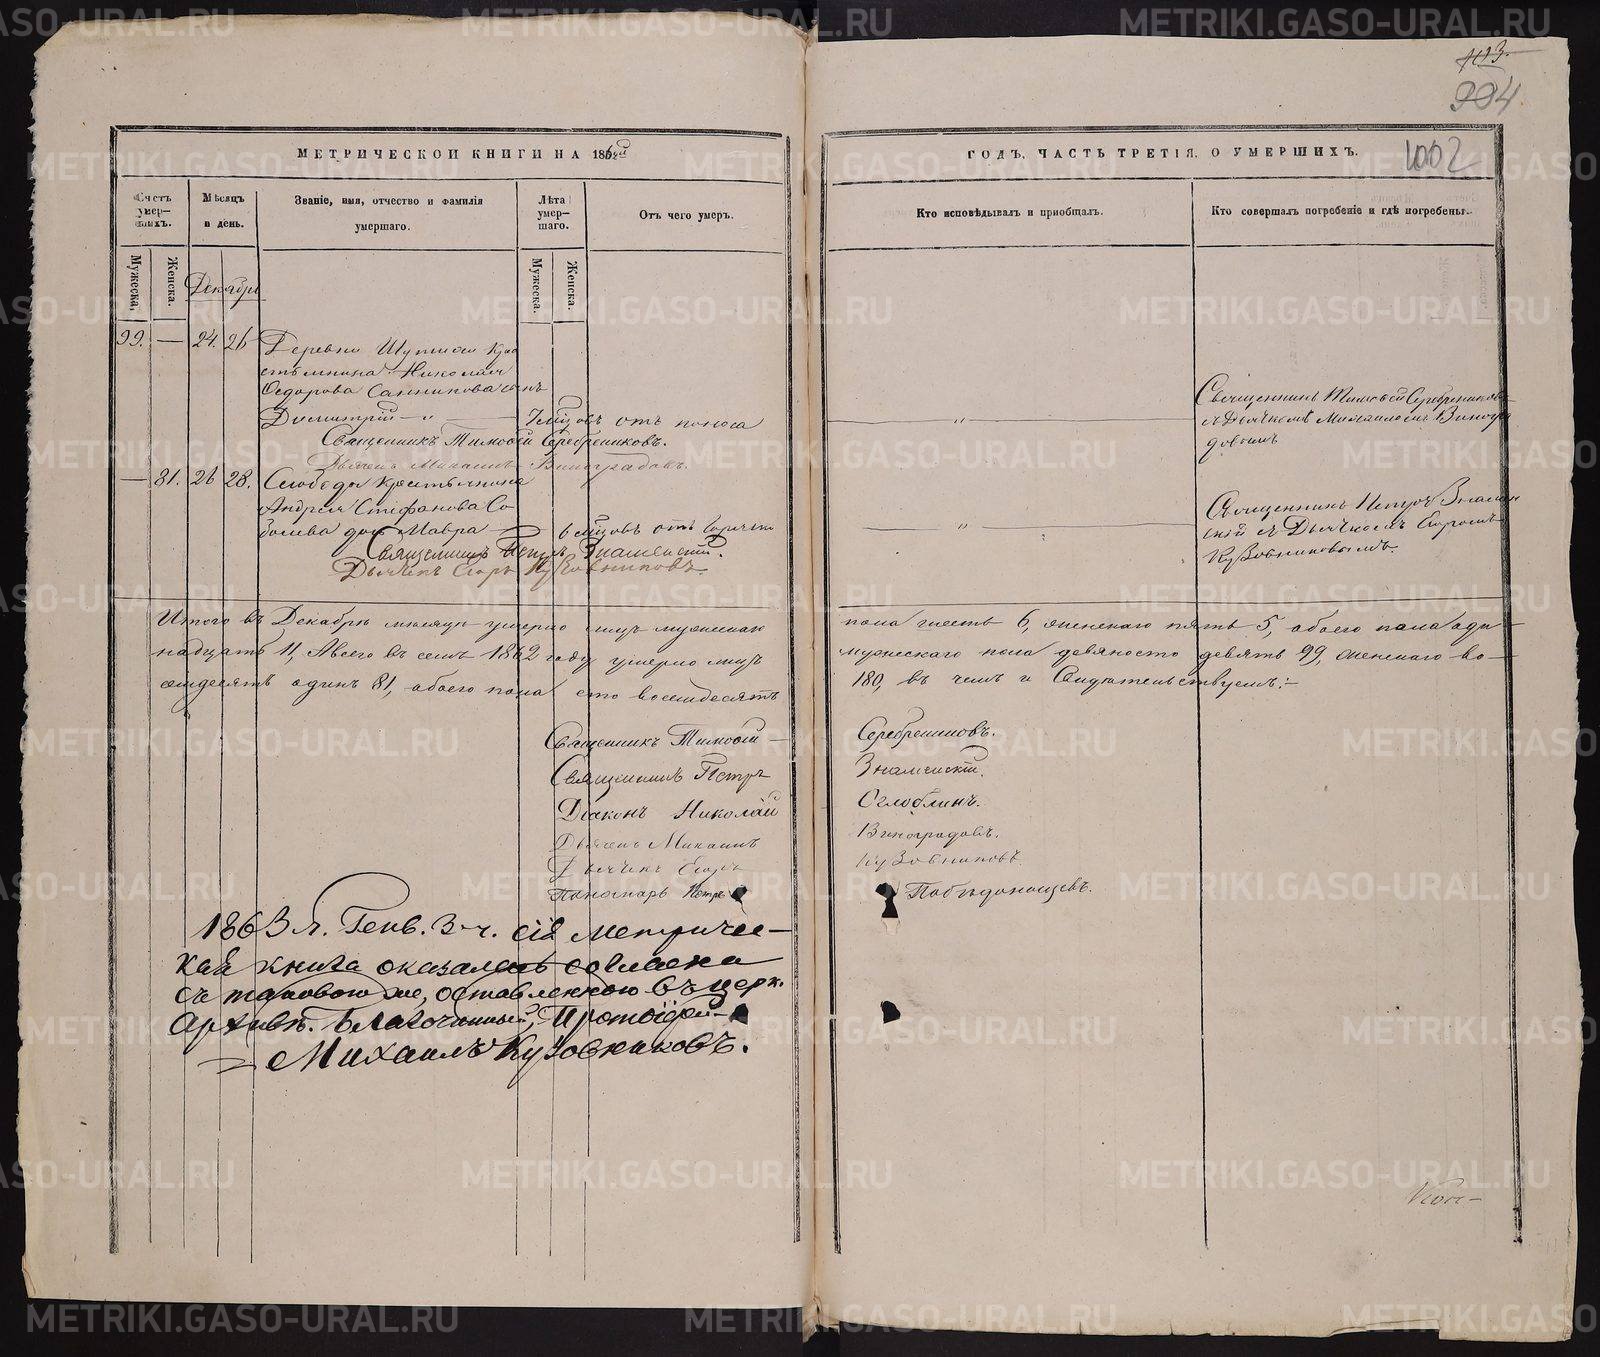 113.
994
1002
МЕТРИЧЕСКОЙ КНИГИ НА 1862й
ГОДЪ, ЧАСТЬ ТРЕТІЯ, О УМЕРШИХЪ.
Счетъ умер-шихъ.
Мѣсяцъ и день.
Званіе, имя, отчество и фамилія умершаго.
Лѣта умер-шаго.
Отъ чего умеръ.
Кто исповѣдывалъ и пріобщалъ.
Кто совершалъ погребеніе и гдѣ погребены.
Мужеска.
Женска.
Декабрь
Мужеска.
Женска.
99. — 24. 26
Деревни Кре
стьянина Николая
Ѳедорова Санникова сынъ
Димитрій — „ —
мѣсцовъ отъ поноса
Священникъ Тимоѳей Серебрениковъ.
Дьячекъ Михаилъ Виноградовъ.
— „ —
Священникъ Тимоѳей Серебрениковъ
съ Дьячкомъ Михаиломъ Виногра
довымъ
— 81. 26 28.
Слободы Крестьянина
Андрея Стефанова Со
болева дочь Мавра —
6 мѣсцовъ отъ горячки
Священникъ Петръ Знаменскій.
Дьячекъ Егоръ Кузовниковъ.
— „ —
Священникъ Петръ Знамен
скій съ Дьячкомъ Егоромъ
Кузовниковымъ.
Итого въ Декабрѣ мѣсяцѣ умерло лицъ мужескаго пола шесть 6, женскаго пять 5, обоего пола оди-
надцать 11, А всего въ семъ 1862 году умерло лицъ мужескаго пола девяносто девять 99, женскаго во-
семдесятъ одинъ 81, обоего пола сто восемдесятъ 180, въ чемъ и Свидѣтельствуемъ:—
Священникъ Тимоѳей — Серебрениковъ.
Священникъ Петръ Знаменскій.
Діаконъ Николай Оглоблинъ.
Дьячекъ Михаилъ Виноградовъ.
Дьячекъ Егоръ Кузовниковъ.
Пономарь Петръ Побѣдоносцевъ.
1863 г. Генв. 3 ч. сія метричес-
кая книга оказалась согласна
съ таковою же, оставленною въ церк.
Архивѣ. Благочинный, Протоіерей
Михаилъ Кузовниковъ.
METRIKI.GASO-URAL.RU